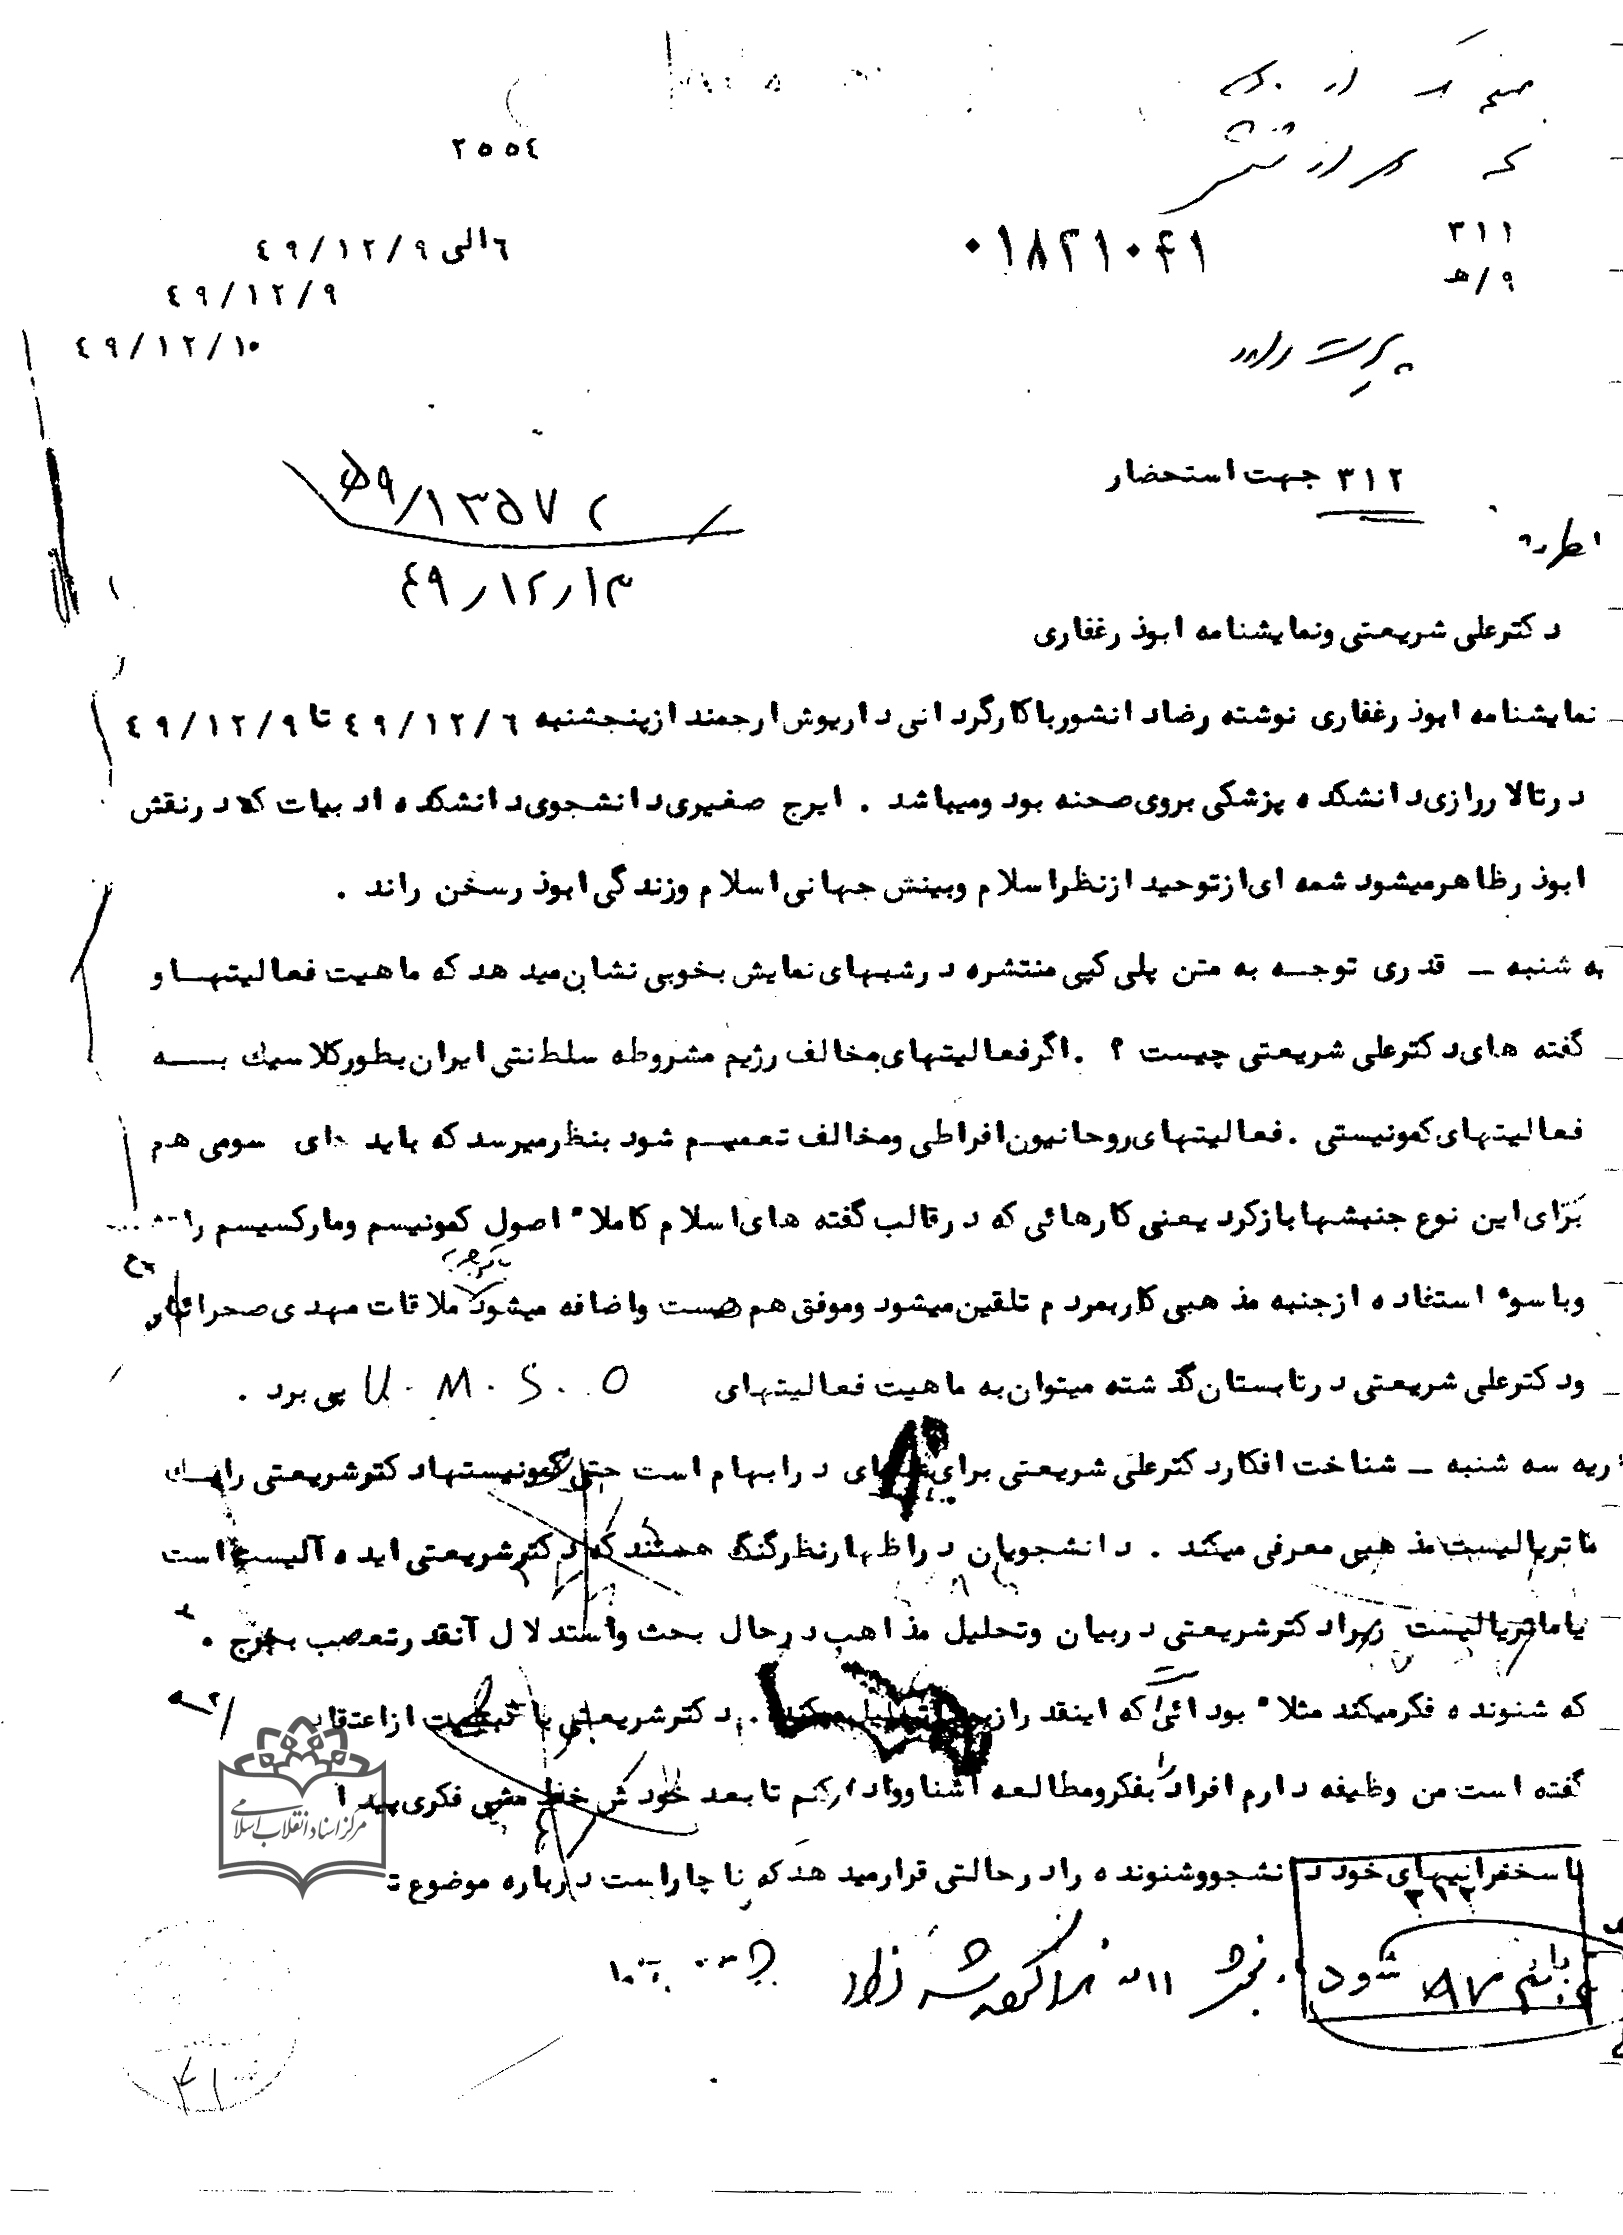 ۲۵۵٤
۳۱۱
٦الی ٤۹/۱۲/۹
۰۱۸۲۱۰۴۱
۹/هـ
٤۹/۱۲/۹
٤۹/۱۲/۱۰
۳۱۲ جهت استحضار
۵۹/۱۳۵۷۲
٤۹/۱۲/۱۳
دکترعلی شریعتی ونمایشنامه ابوذرغفاری
نمایشنامه ابوذرغفاری نوشته رضادانشورباکارگردانی داریوش ارجمند ازپنجشنبه ٤۹/۱۲/٦ تا ٤۹/۱۲/۹
درتالاررازی دانشکده پزشکی بروی صحنه بود ومیباشد . ایرج صغیری دانشجوی دانشکده ادبیات که درنقش
ابوذرظاهرمیشود شمه ای ازتوحید ازنظراسلام وبینش جهانی اسلام وزندگی ابوذرسخن راند .
یه شنبه ــ قدری توجه به متن پلی کپی منتشره درشبهای نمایش بخوبی نشان میدهد که ماهیت فعالیتها و
گفته های دکترعلی شریعتی چیست ؟ .اگرفعالیتهای مخالف رژیم مشروطه سلطنتی ایران بطورکلاسیک به
فعالیتهای کمونیستی .فعالیتهای روحانیون افراطی ومخالف تعمیم شود بنظرمیرسد که باید جای سومی هم
برای این نوع جنبشها بازکرد یعنی کارهائی که درقالب گفته های اسلام کاملا" اصول کمونیسم ومارکسیسم را
وباسوء استفاده ازجنبه مذهبی کاربمردم تلقین میشود وموفق هم هست واضافه میشود ملاقات مهدی صحرائیان
ودکترعلی شریعتی درتابستان گذشته میتوان به ماهیت فعالیتهای U.M.S.O پی برد .
ریه سه شنبه ــ شناخت افکاردکترعلی شریعتی برای عده ای درابهام است حتی کمونیستهادکترشریعتی رایک
ماتریالیست مذهبی معرفی میکند . دانشجویان دراظهارنظرگنگ هستند که دکترشریعتی ایده آلیست است
یاماتریالیست زیرادکترشریعتی دربیان وتحلیل مذاهب درحال بحث واستدلال آنقدرتعصب بخرج
که شنونده فکرمیکند مثلا" بودائی است که اینقدرازبودا تجلیل میکند . دکترشریعتی با تبعیت ازاعتقاد
گفته است من وظیفه دارم افراد را بفکرومطالعه آشنا ووادارکنم تابعد خودش خط مشی فکری پیدا
باسخنرانیهای خود دانشجووشنونده رادرحالتی قرارمیدهد که ناچاراست درباره موضوع
۳۱۲
بایگانی شود
مرکز اسناد انقلاب اسلامی